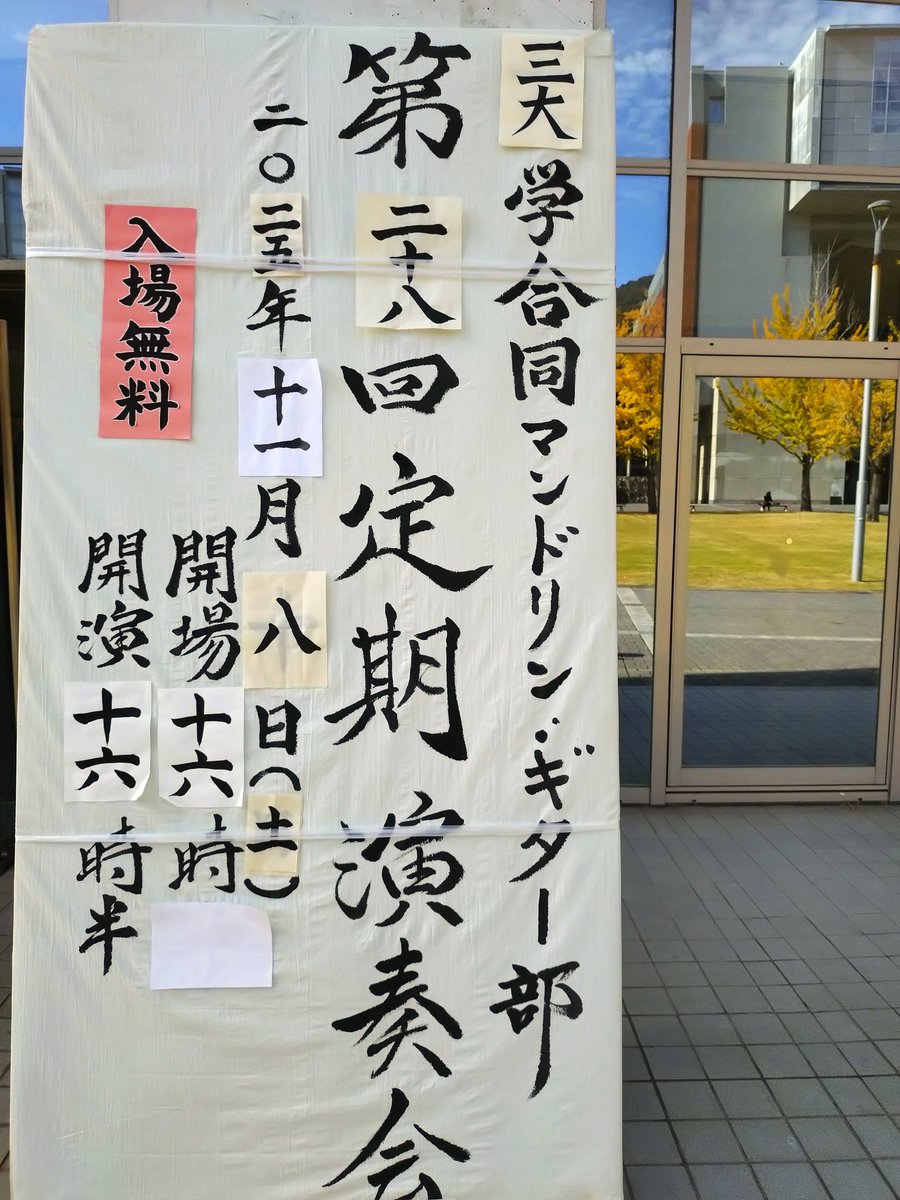 三大学合同マンドリン・ギター部
第二十八回定期演奏会
二〇二五年十一月八日(土)
入場無料
開場十六時
開演十六時半